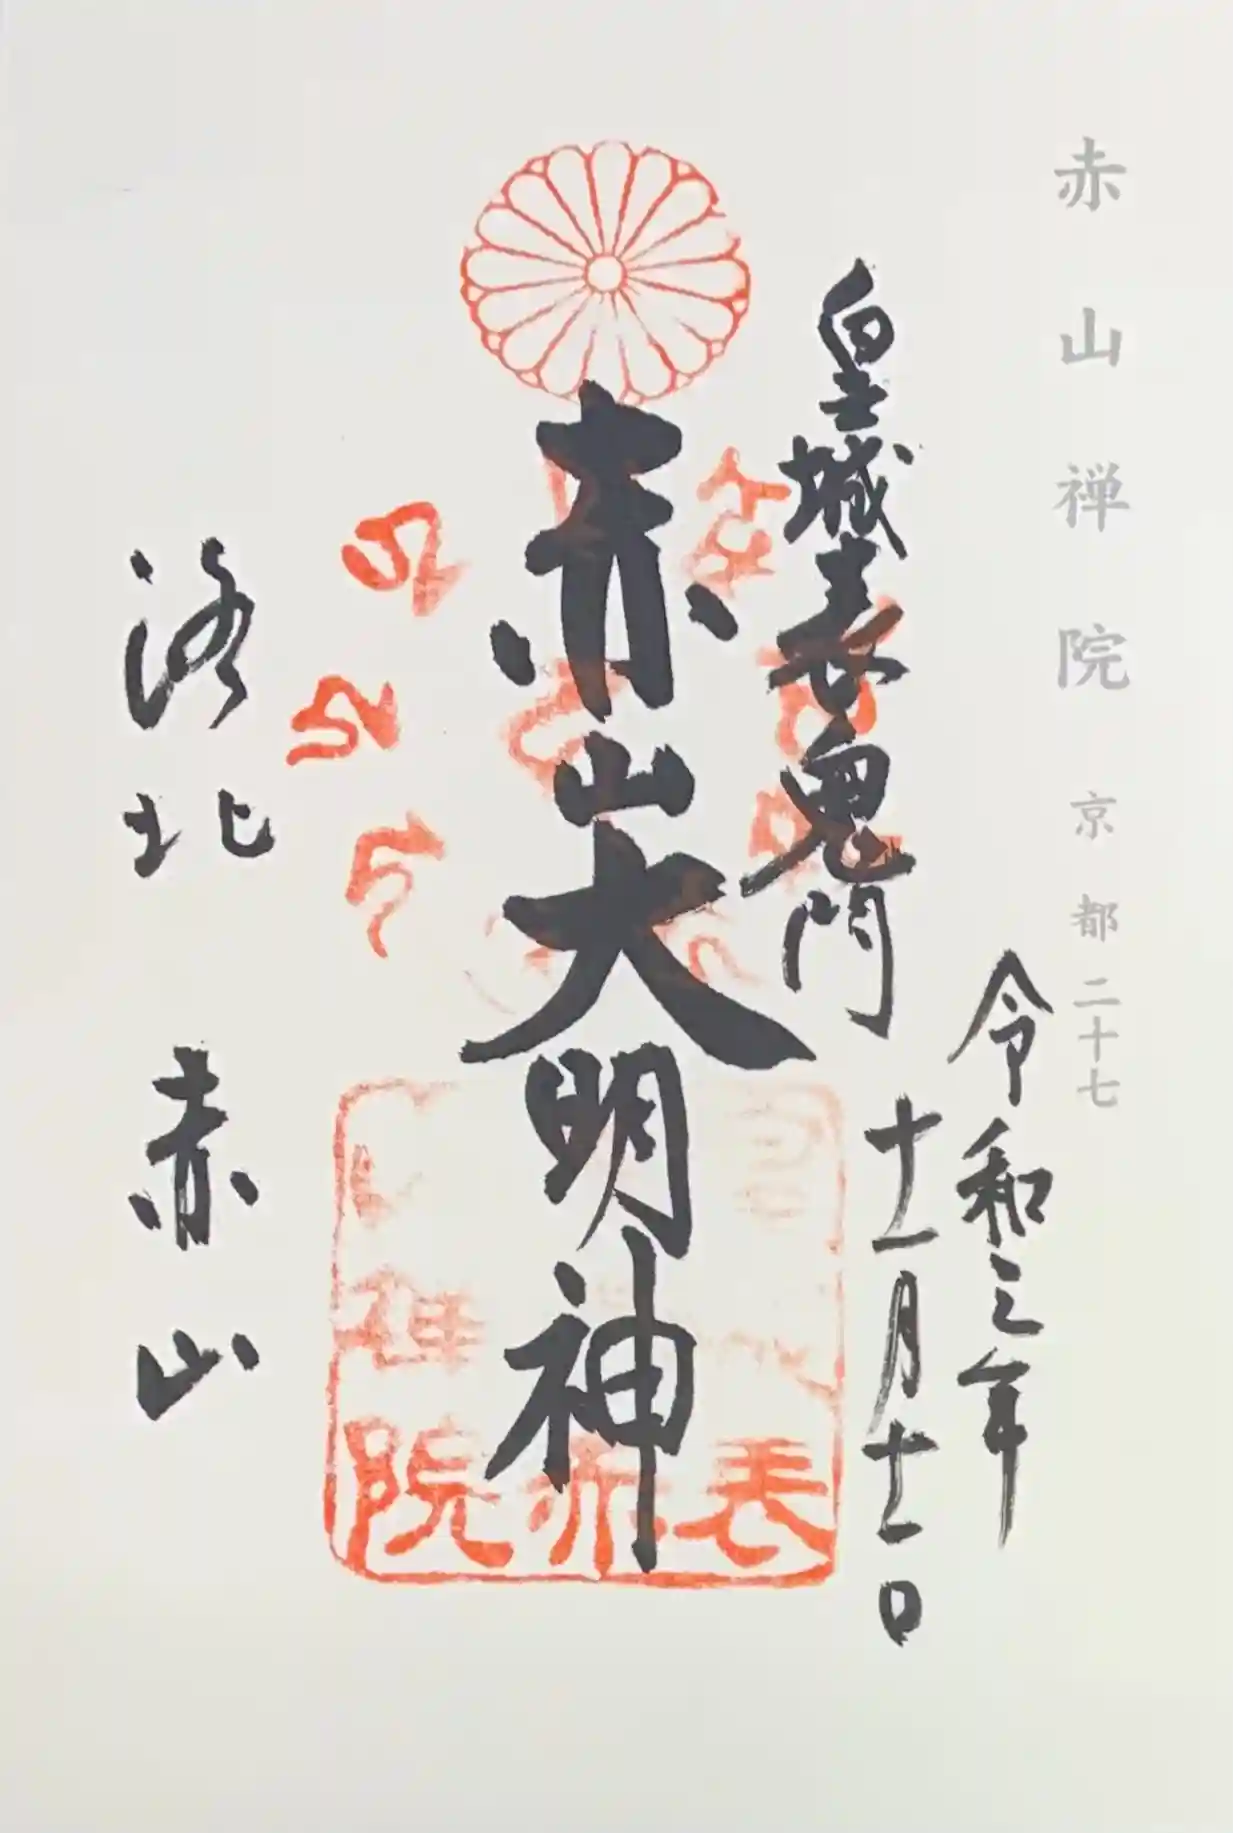 赤山禅院 京都二十七
令和元年
十一月十一日
皇城表鬼門
赤山大明神
洛北 赤山
表
赤
禅
院